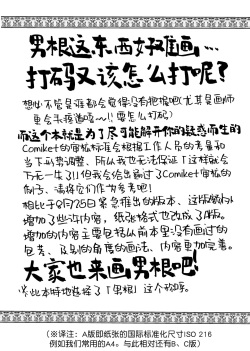 男根这东西好难画...
打码又该怎么打呢?
想必不管是谁都会觉得没有把握吧(尤其是画师
更会未接通嗟～!!要怎么打码)
而这个本就是为了尽可能解开你的疑惑而生的
Comiket的审核标准会根据工作人员的考量和
当下形势调整、所以我也无法保证「这样就会
万无一失」!!但我会给出通过了Comiket审核的
例子、请将它们作为参考吧!
相比于9月25日紧急推出的版本、这版额外
增加了些许内容，纸张格式也改成了A版。
增加的内容主要包括从前本里没有画过的
包茎、及别的角度的画法、内容更加完善。
大家也来画男根吧!
※此本特地选择了「男根」这个称呼。
(※译注：A版即纸张的国际标准化尺寸ISO 216
例如我们常用的A4。与此相对还有B、C版)